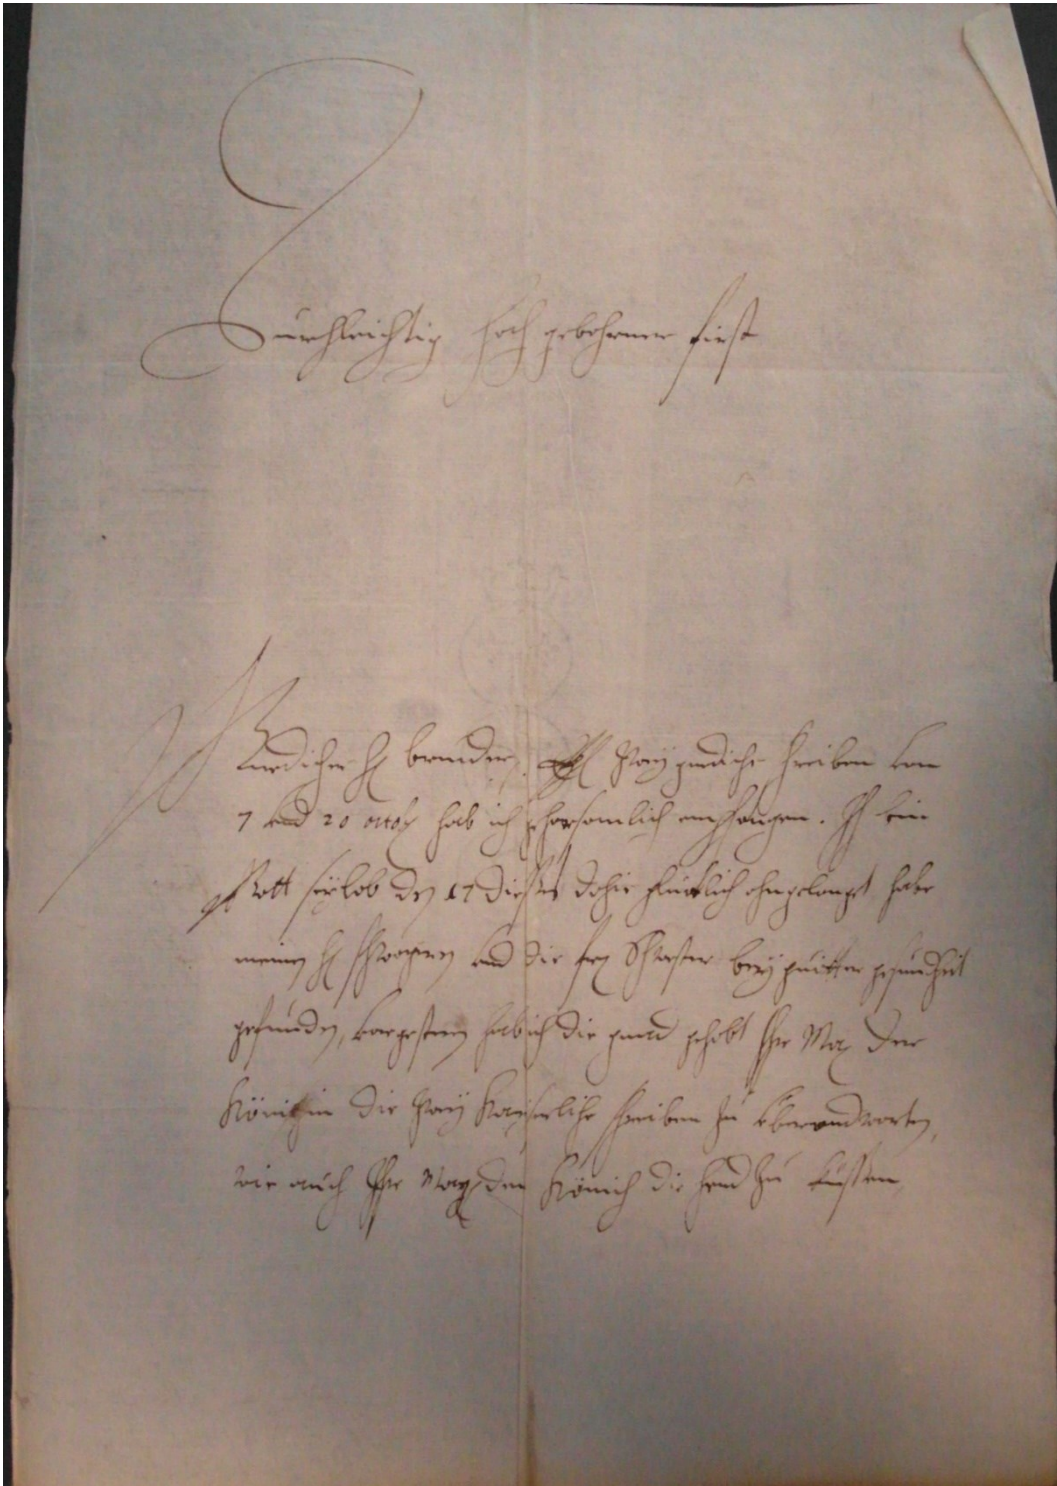 Durchleichtig hoch gebohrner first
Knedicher H bruuder, zway gnediche schreiben von
7 vnd 20 octob hab ich gehorsomlich empfangen. Ich bin
Gott seÿ lob den 17 dieses dohie glücklich ohngelangt, habe
meinen H schwagern vnd die fr Schwester beÿ guitter gesundheit
gefunden, vorgestern hab ich die gnad gehobt Ihr Maÿ der
Königin die zway Kayserliche schreiben zu vberandworten,
wie auch Ihr Maÿ dem Könich die hend zu kussen,